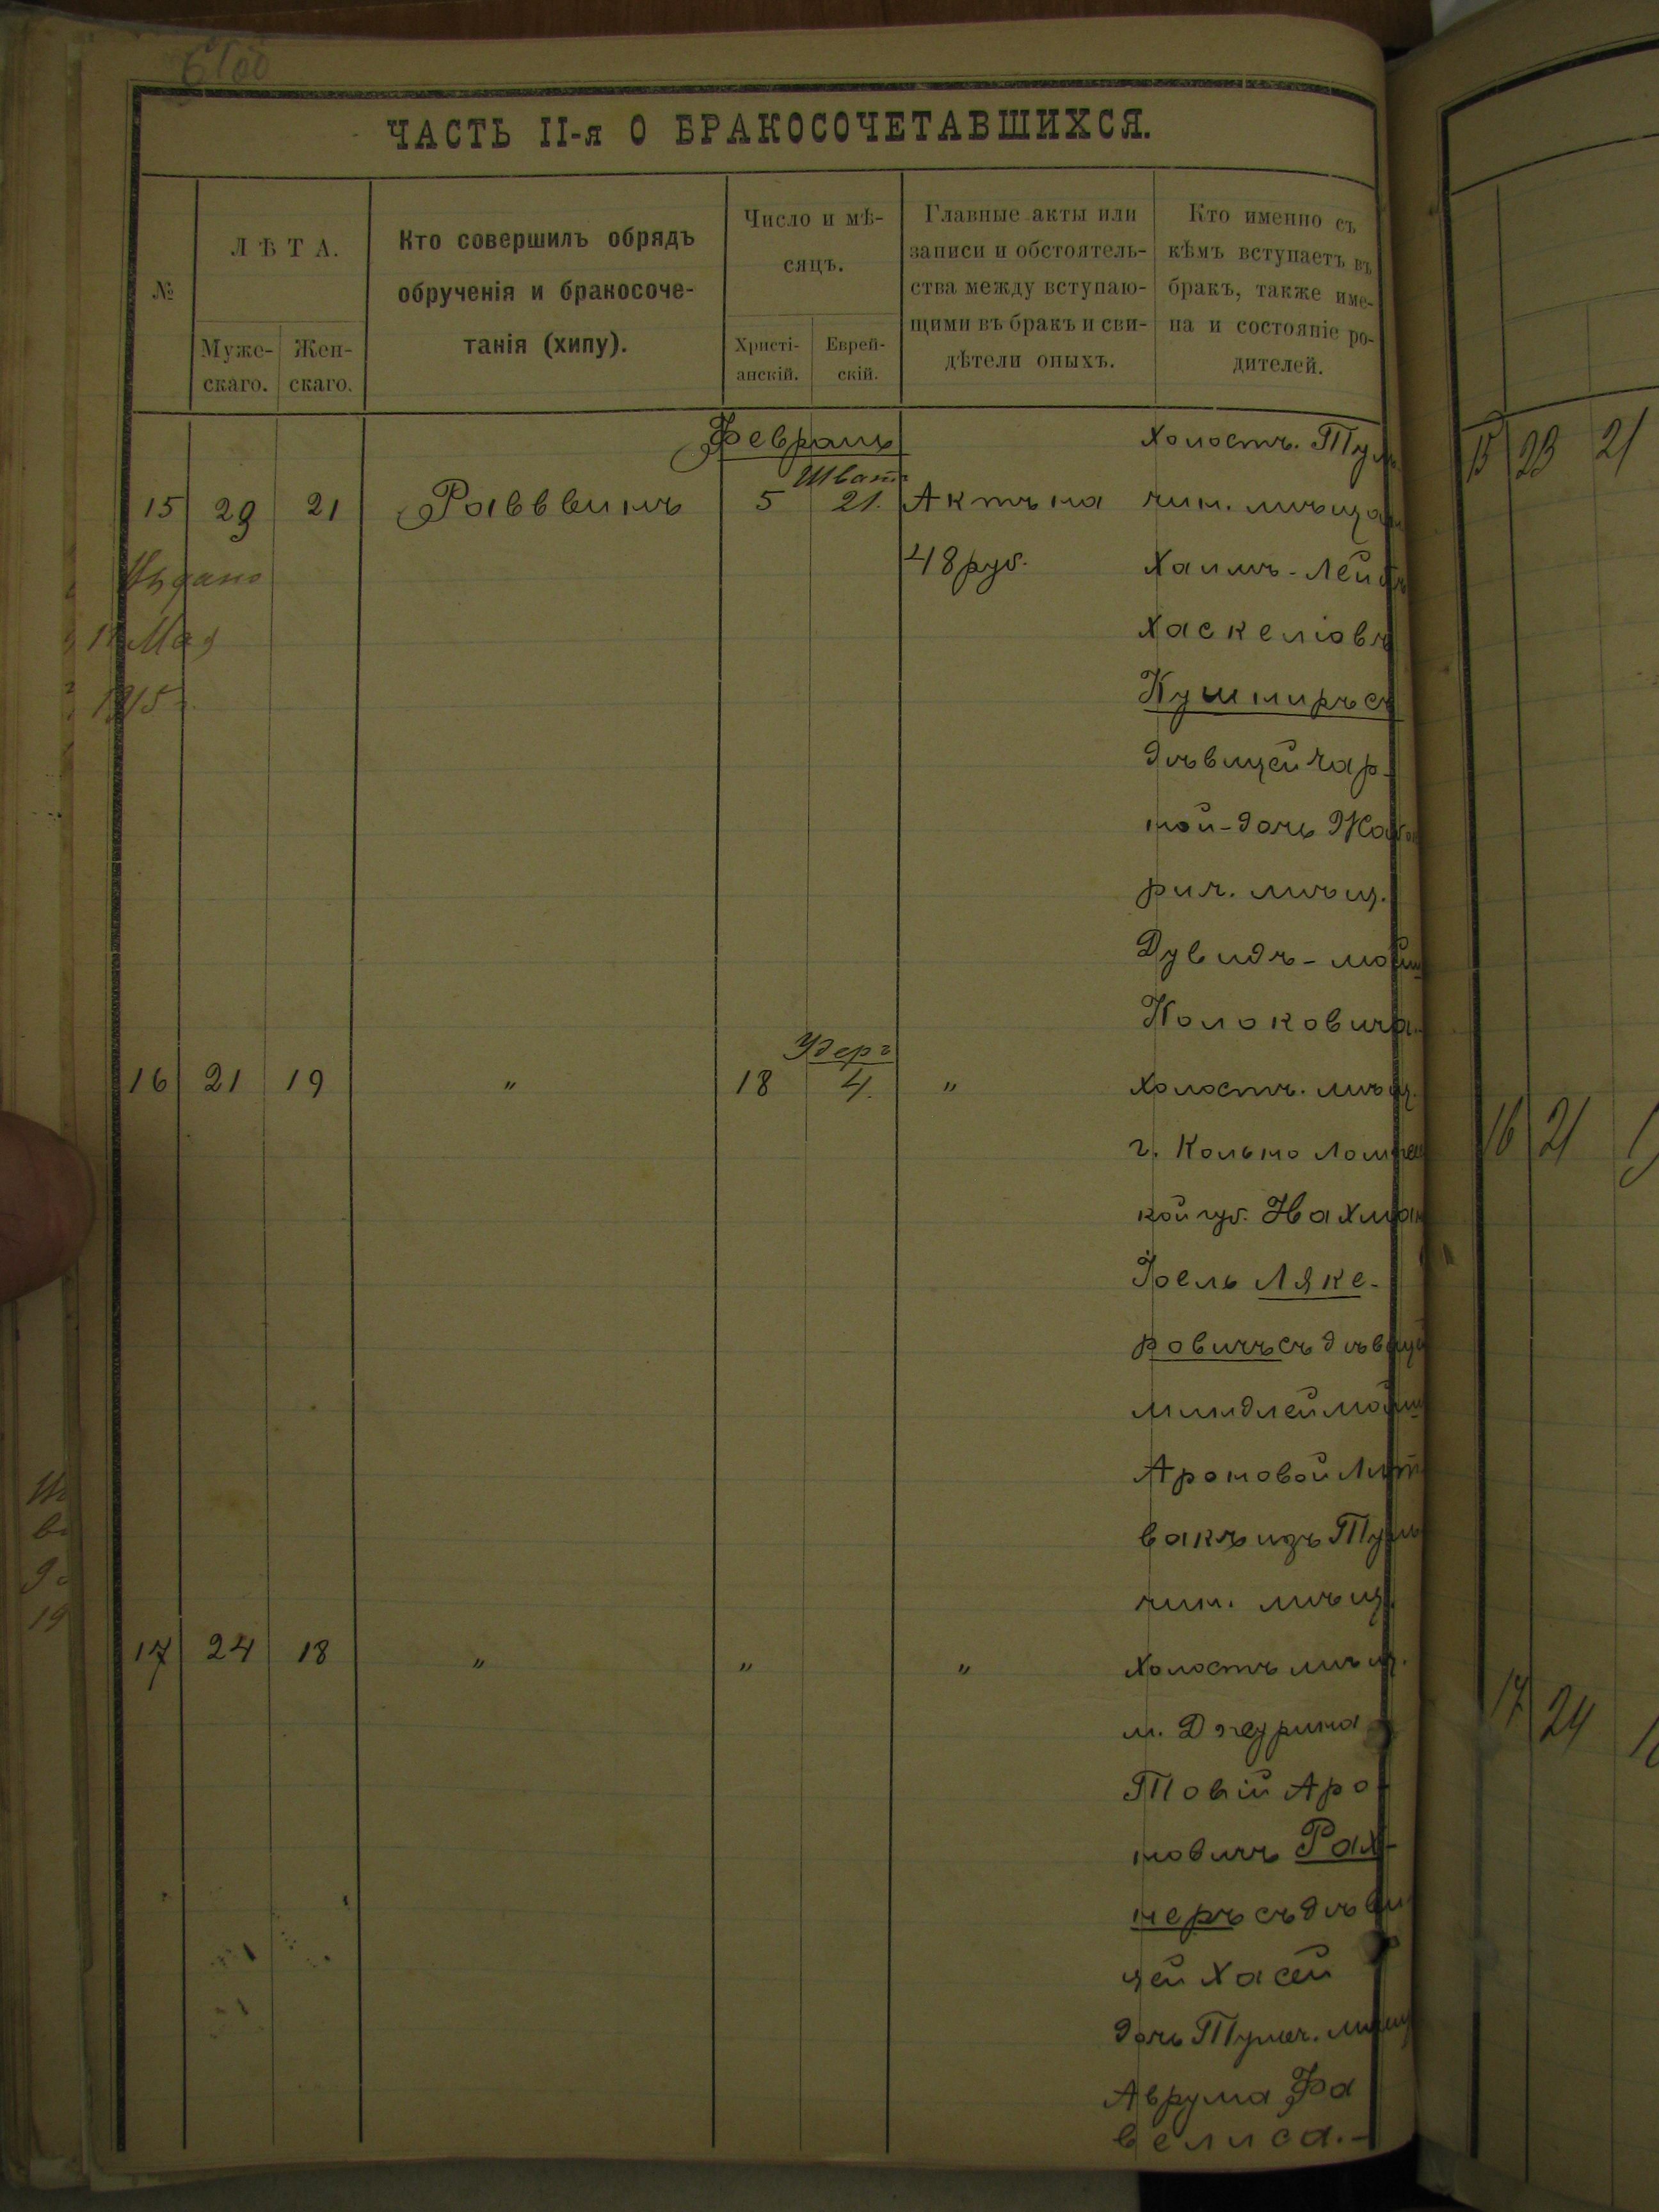 ЧАСТЬ II-я О БРАКОСОЧЕТАВШИХСЯ.
№
ЛѢТА.
Муже-
скаго.
Жен-
скаго.
Кто совершилъ обрядъ
обрученія и бракосоче-
танія (хипу).
Число и мѣ-
сяцъ.
Христі-
анскій.
Еврей-
скій.
Главные акты или
записи и обстоятель-
ства между вступаю-
щими въ бракъ и сви-
дѣтели оныхъ.
Кто именно съ
кѣмъ вступаетъ въ
бракъ, также име-
на и состояніе ро-
дителей.
Февраль
Шват
15 29 21 Раввинъ 5 21. Актъ на
48 руб.
Выдано
11 Мая
1915 г.
Холостъ. Туль
чин. мѣщан
Хаимъ-Лейбъ
Хаскелюв
Кушниръ съ
дѣвицей Чар-
ной-дочь
рич. мѣщ.
Дувидъ-
Колоковича.
Удерг
16 21 19 " 18 4. "
Холостъ. мѣщ.
г. Кольно Ломжес
кой губ. Нахман
Іоель Ляке-
ровичъ съ дѣвицей
Миндлей
Ароновой Лит
вакъ изъ Туль
чин. мѣщ.
17 24 18 " " "
Холостъ мѣщ.
м. Джурина
Товій Аро-
новичъ Рах-
неръ съ дѣви
цей Хасей
дочь Тульч. мѣщ
Аврума Фа
велиса.-
15 23 21
16 21
17 24